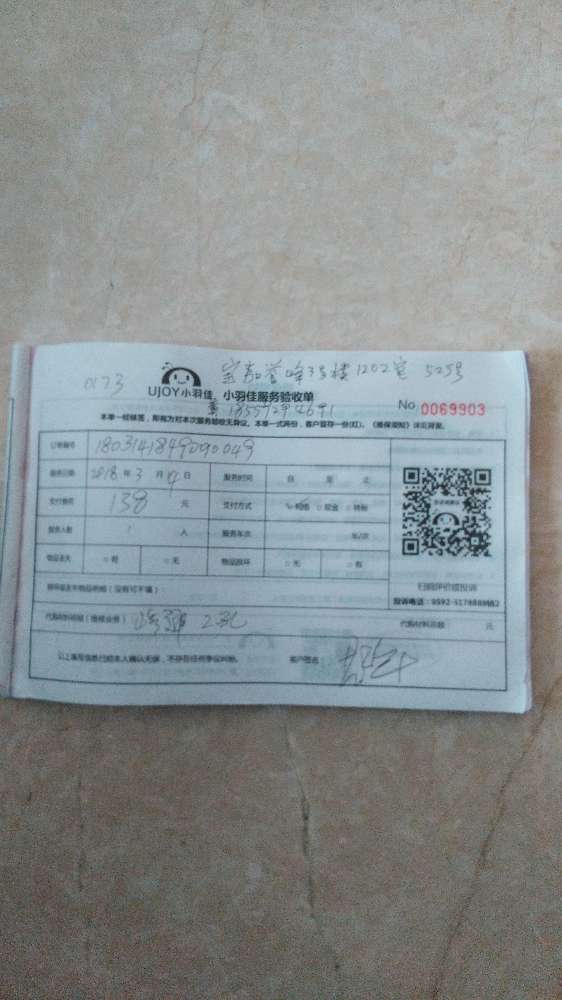 0173 宝嘉誉峰3号楼1202室 525号
UJOY小羽佳 小羽佳服务验收单
No 0069903
本单一经核签，即视为对本次服务验收无异议。本单一式两份，客户留存一份(红)。《维保须知》详见背面。
订单编号
服务日期 2018 年 3 月 14 日 服务时间 自 至 止
支付费用 138 元 支付方式 网络 □现金 □转帐
服务人数 1 人 服务车次 车/次
物品丢失 □有 □无 物品损坏 □无 □有
扫码评价或投诉
损坏或丢失物品明细（没有可不填）
代购材料明细（维修业务） 2孔 代购材料总额 元
以上填写信息已经本人确认无误，不存在任何争议纠纷。 客户签名